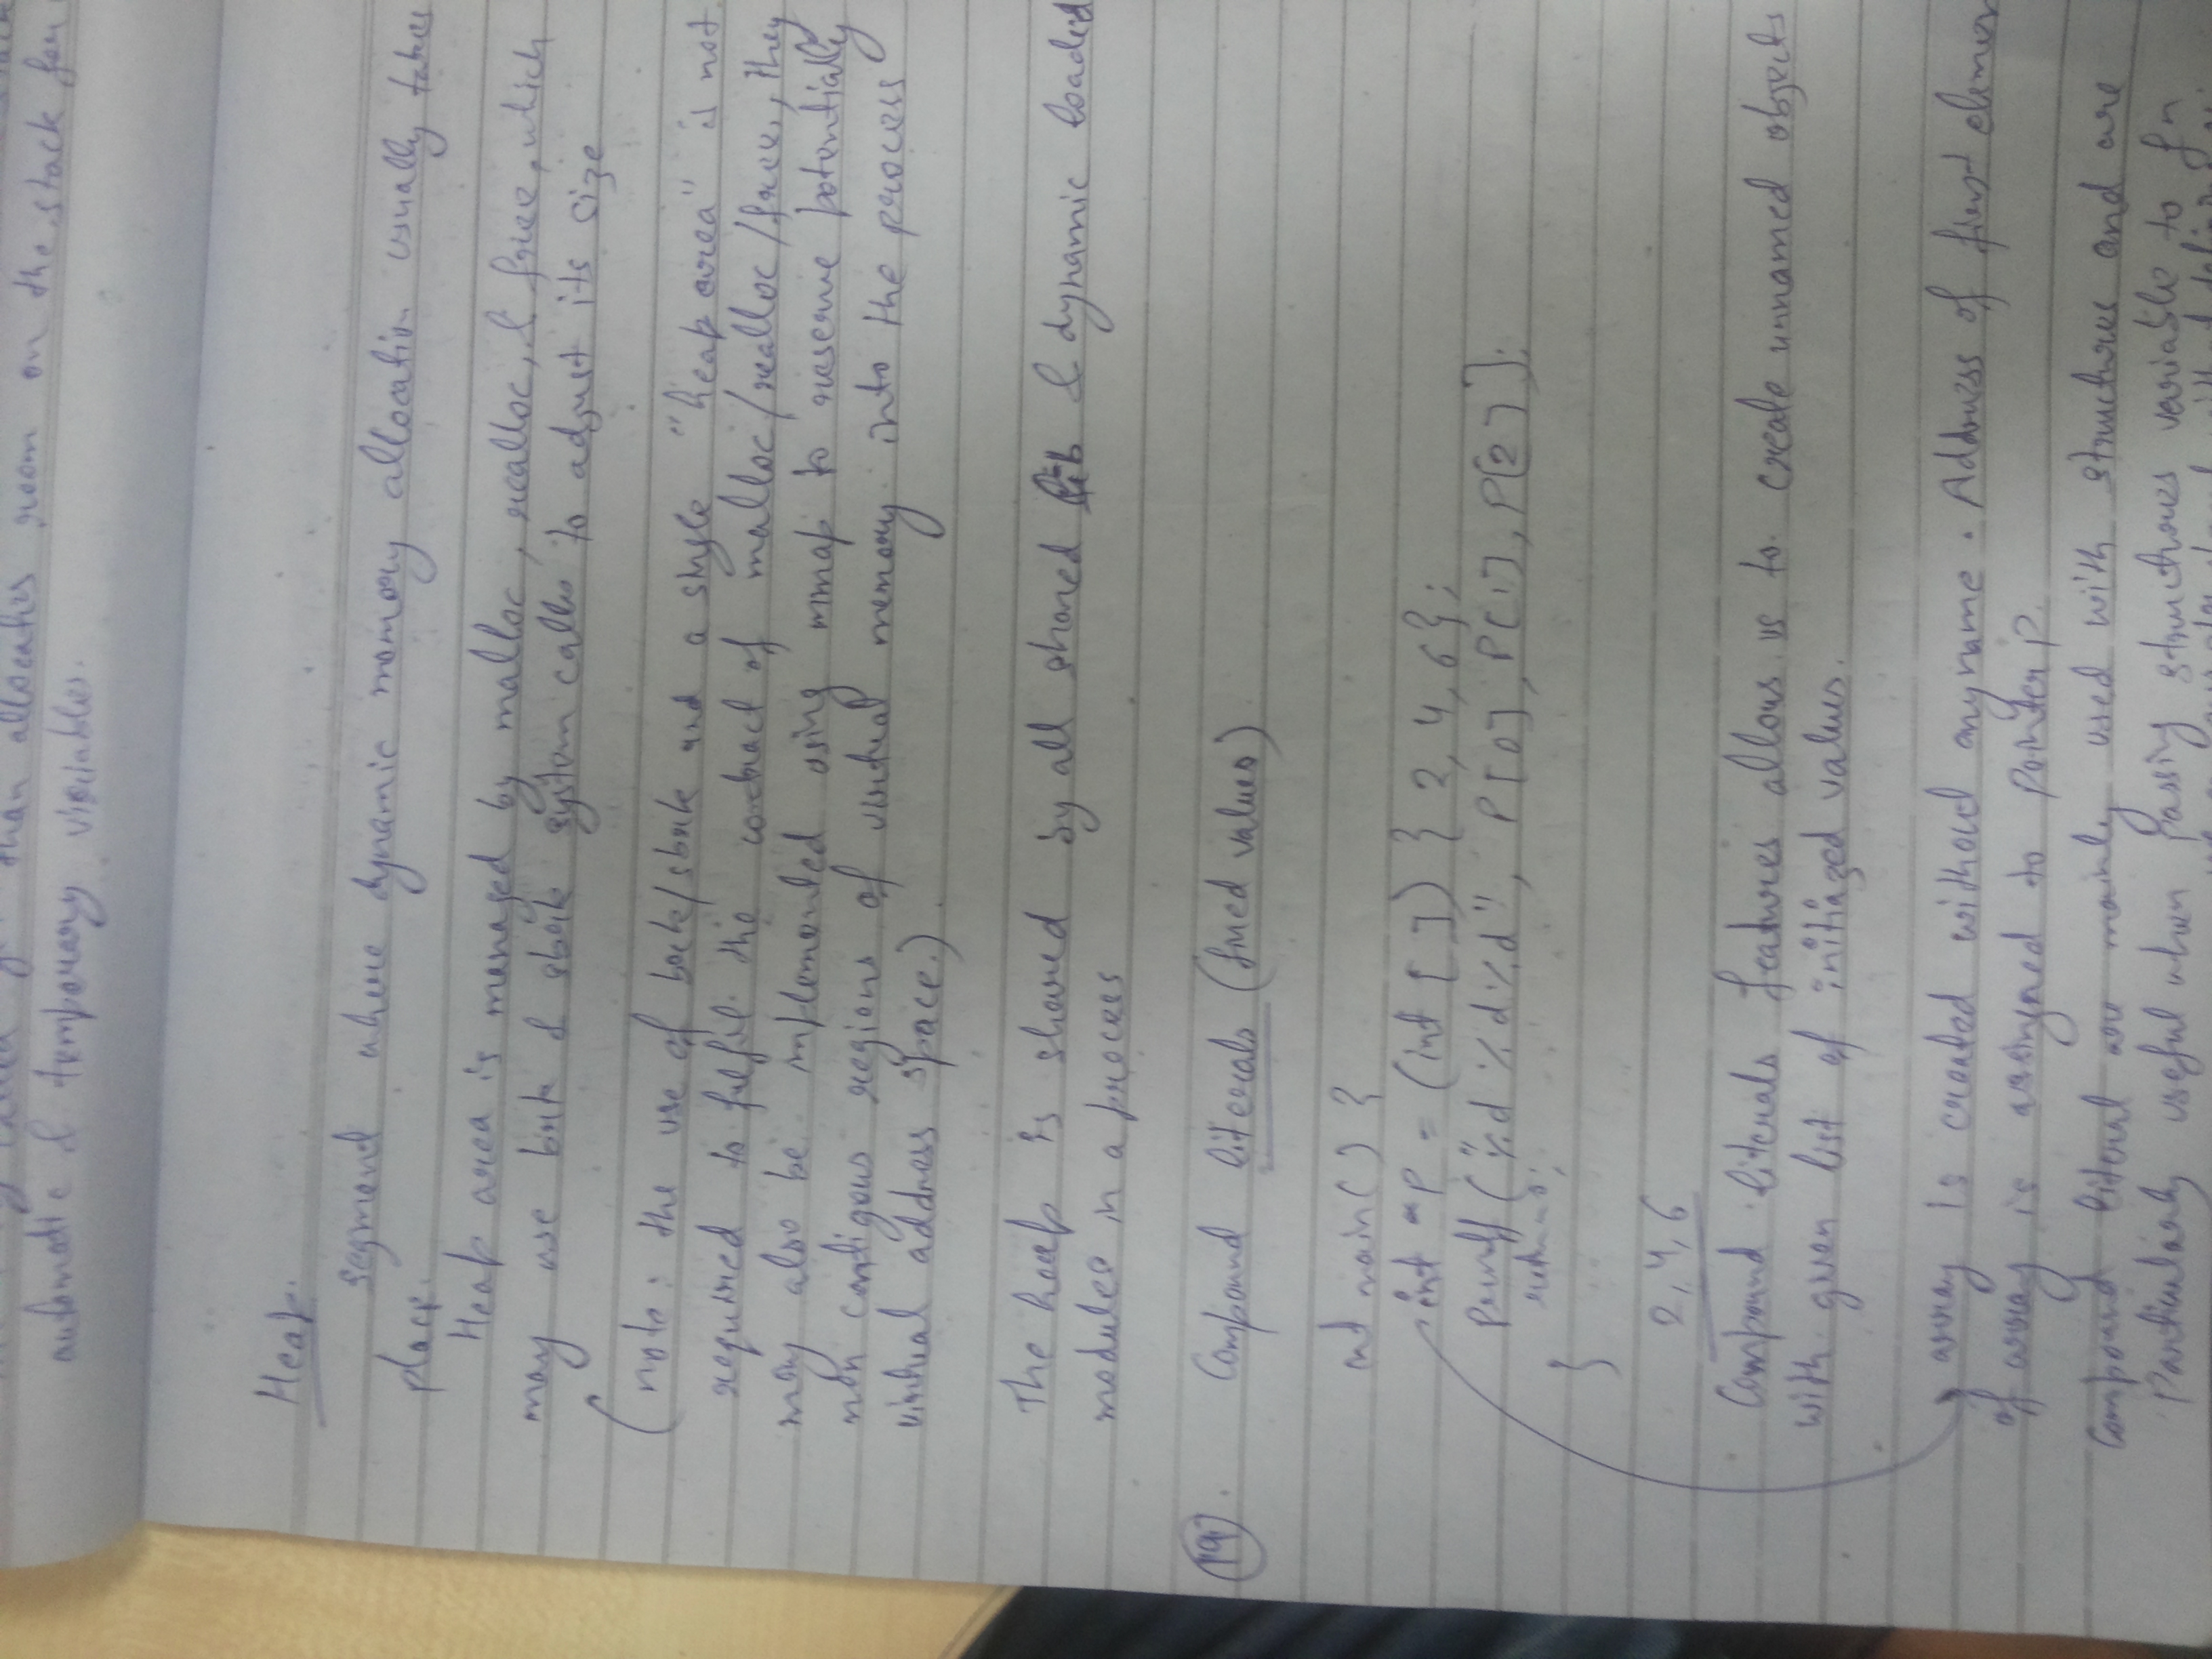 than allocates room on the stack for
automatic & temporary variables.
Heap.
segment where dynamic memory allocation usually takes
place.
Heap area is managed by malloc, realloc, & free, which
may use brk & sbrk system calls to adjust its size
(note: the use of brk/sbrk and a single "heap area" is not
required to fulfil the contract of malloc/realloc/free, they
may also be implemented using mmap to reserve potentially
non contigous regions of virtual memory into the process
virtual address space.).
The heap is shared by all shared lib & dynamic loaded
modules in a process
19. Compound literals (fixed values)
int main() {
int *p = (int [ ]) { 2, 4, 6};
printf ("%d %d %d", P[0], P[1], P[2]];
return 0;
}
2, 4, 6
Compound literals features allows us to create unnamed objects
with given list of initiazed values.
array is created without any name. Address of first elemen
of array is assigned to pointer p.
Compound literal are mainly used with structures and are
particularly useful when passing structures variable to fn